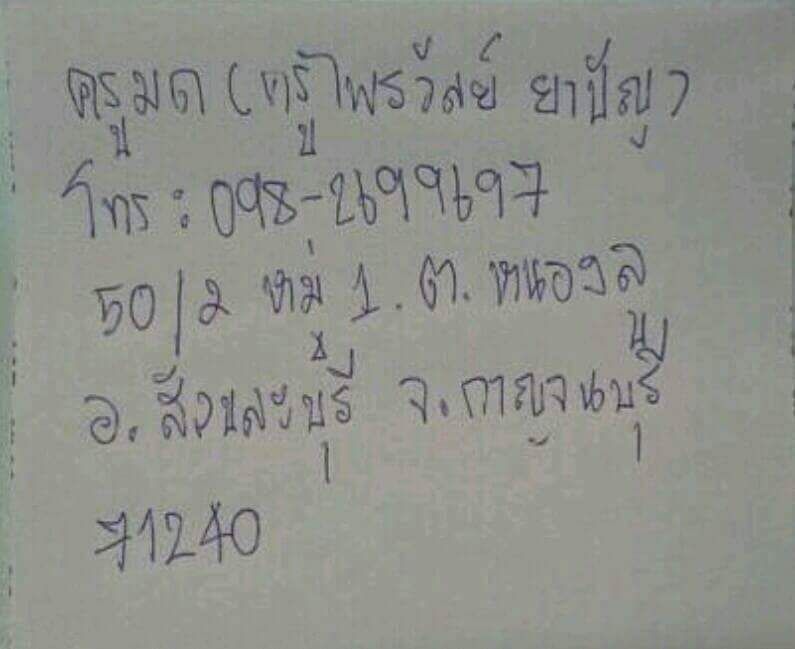 ครูมด (ครูไพรวัลย์ ยาปัญ)
โทร : 098-2699697
50/2 หมู่ 1. ต. หนองลู
อ. สังขละบุรี จ. กาญจนบุรี
71240